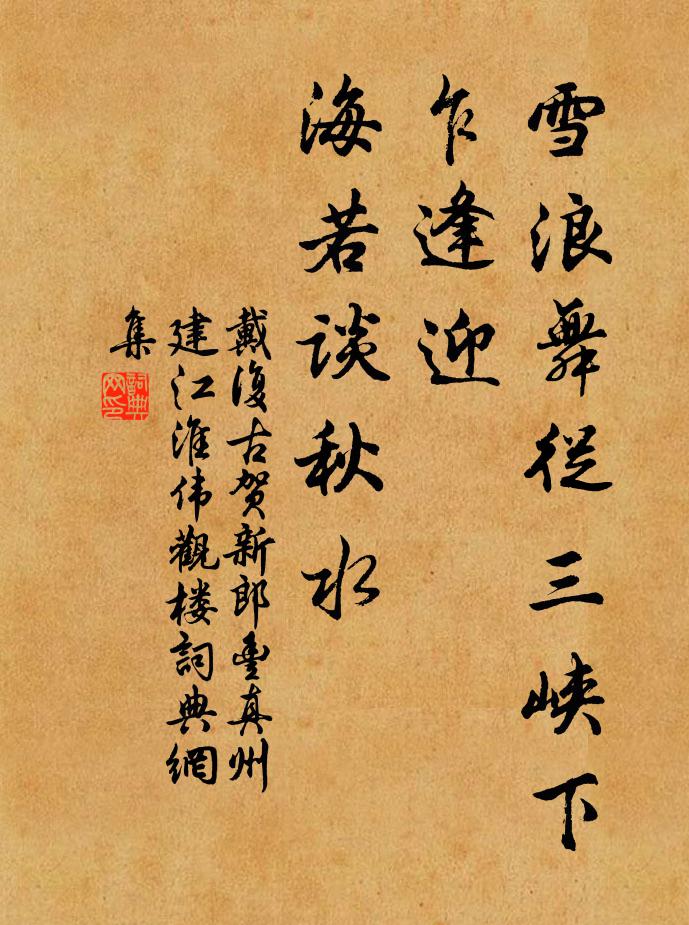 雪浪舞従三峡下
乍逢迎
海若談秋水
戴復古贺新郎豊真州
建江淮伟觀楼詞典網
集
詞典
网印